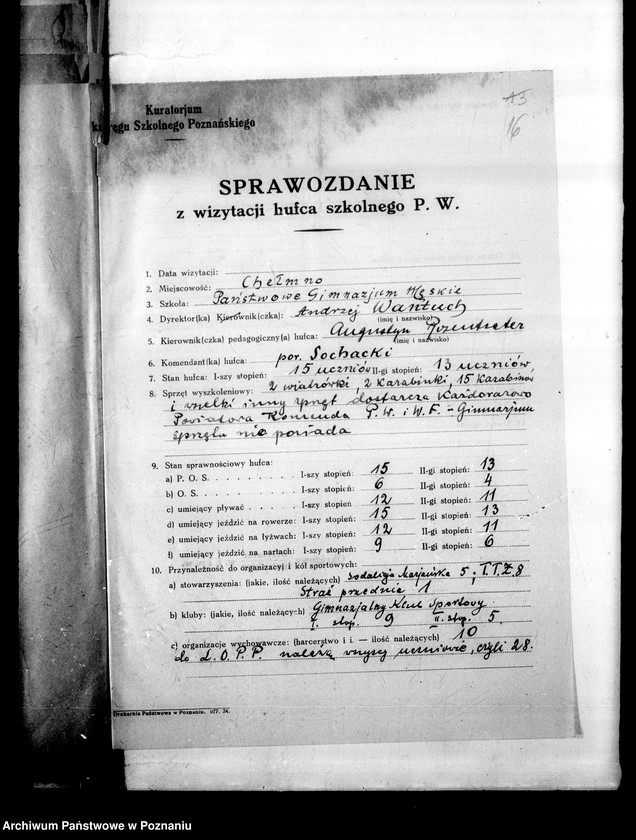 Kuratorjum
Okręgu Szkolnego Poznańskiego
13
16
SPRAWOZDANIE
z wizytacji hufca szkolnego P. W.
1. Data wizytacji:
2. Miejscowość: Chełmno
3. Szkoła: Państwowe Gimnazjum Męskie
4. Dyrektor(ka) Kierownik(czka): Andrzej Wantuch
(imię i nazwisko)
5. Kierownik(czka) pedagogiczny(a) hufca: Augustyn
(imię i nazwisko)
6. Komendant(ka) hufca: por. Sochacki
7. Stan hufca: I-szy stopień: 15 uczniów II-gi stopień: 13 uczniów
8. Sprzęt wyszkoleniowy: 2 wiatrówki, 2 karabinki, 15 karabinów
i wszelki inny sprzęt dostarcza każdorazowo
Powiatowa Komenda P. W. i W. F. – Gimnazjum
sprzętu nie posiada
9. Stan sprawnościowy hufca:
a) P. O. S. I-szy stopień: 15 II-gi stopień: 13
b) O. S. I-szy stopień: 6 II-gi stopień: 4
c) umiejący pływać I-szy stopień: 12 II-gi stopień: 11
d) umiejący jeździć na rowerze: I-szy stopień: 15 II-gi stopień: 13
e) umiejący jeździć na łyżwach: I-szy stopień: 12 II-gi stopień: 11
f) umiejący jeździć na nartach: I-szy stopień: 9 II-gi stopień: 6
10. Przynależność do organizacyj i kół sportowych:
a) stowarzyszenia: (jakie, ilość należących) Sodalicja Marjańska 5, T.T.Ż. 8
Straż przednia 1
b) kluby: (jakie, ilość należących) Gimnazjalny Klub Sportowy
I. stop. 9 II. stop. 5
c) organizacje wychowawcze: (harcerstwo i i. — ilość należących) 10
do L. O. P. P. należą wszyscy uczniowie, czyli 28.
Drukarnia Państwowa w Poznaniu. 977. 34.
Archiwum Państwowe w Poznaniu